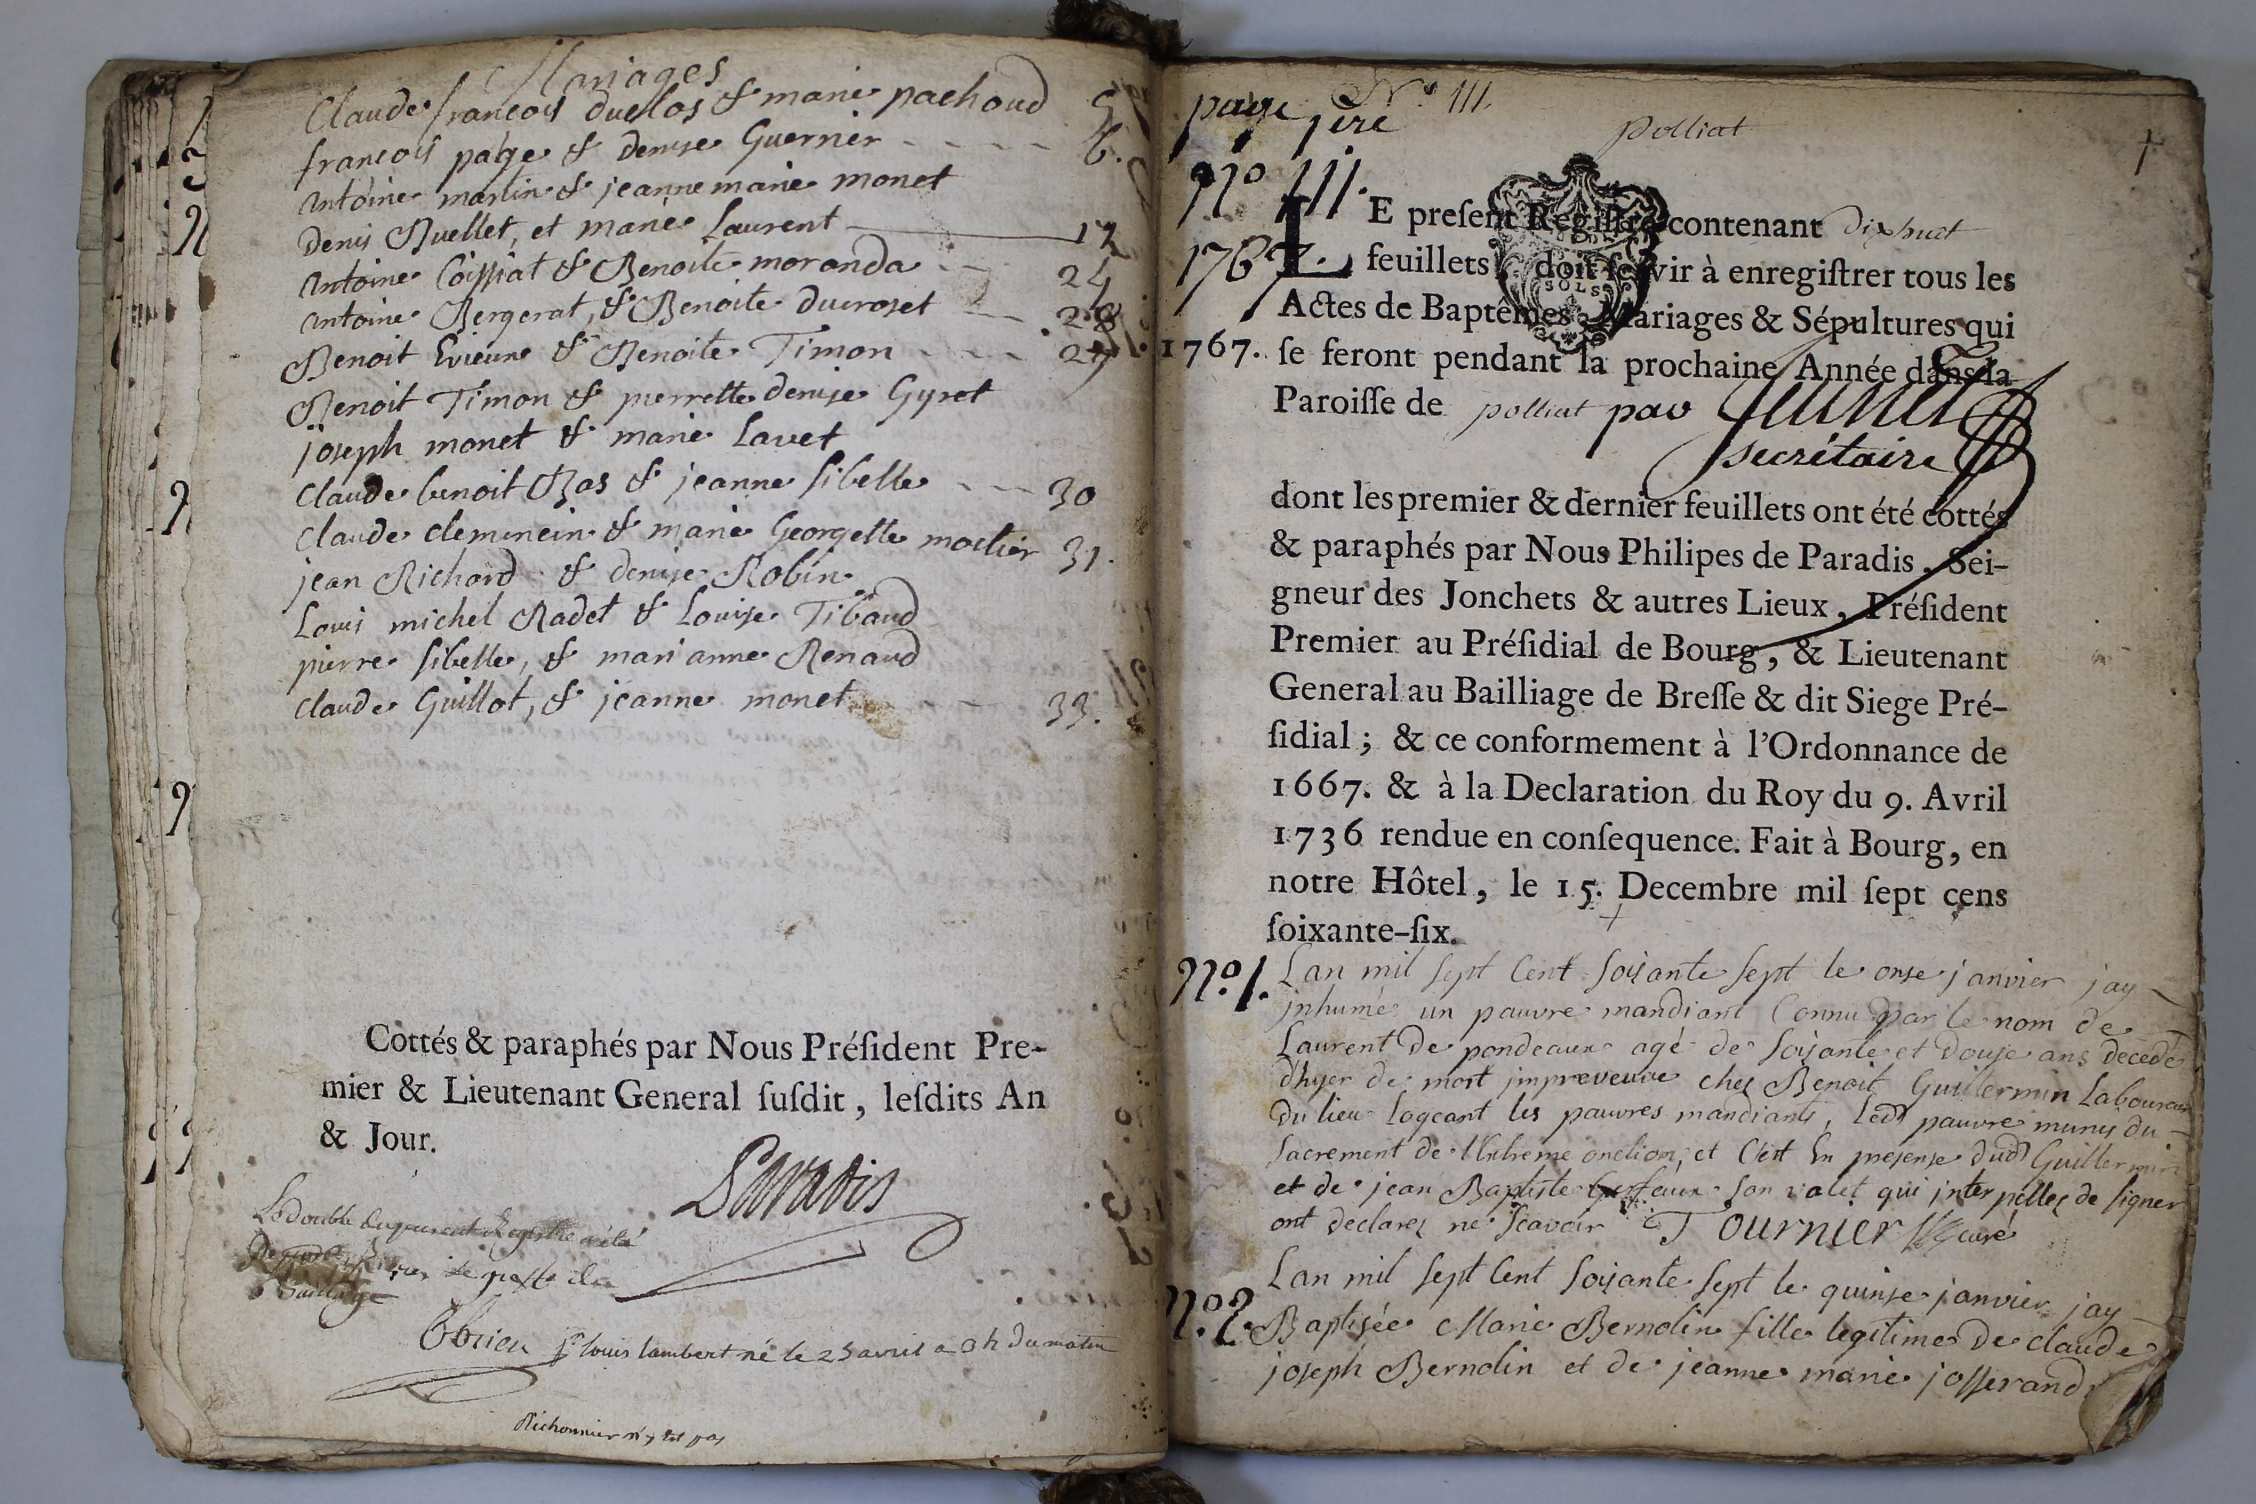 Mariages
Claude françois duclos & marie pachoud 5
françois page & denise Guernier - - - - 6.
antoine martin & jeanne marie monet
denis Buellet, et marie Laurent 17
antoine Coissiat & Benoite moranda - - 24
antoine Bergerat, & Benoite ducroset - - 28
Benoit Evieux & Benoite Timon - - - - 29
Benoit Timon & pierrette denise Gyret
joseph monet & marie Lavet
Claude benoit Bas & jeanne sibelle - - - 30
Claude clemencin & marie Georgette moctier 31.
jean Richard & denise Robin
Louis michel Radet & Louise Tibaud
pierre sibelle, & marianne Renaud
claude Guillot, & jeanne monet - - - 33.
Cottés & paraphés par Nous Préſident Pre-
mier & Lieutenant General ſuſdit, leſdits An
& Jour.
Paradis
Le double du present Registre a été
greffe du
Bailliage
louis lambert né le 25 avril a 3h du matin
Richonnier n'y est pas
page 1ere N° 111.
polliat
N° 111.
1767.
LE preſent Regiſtre contenant dixhuit
feuillets, doit ſervir à enregiſtrer tous les
SOLS
Actes de Baptêmes, Mariages & Sépultures qui
1767. ſe feront pendant la prochaine Année dans la
Paroiſſe de polliat par
secrétaire
dont les premier & dernier feuillets ont été cottés
& paraphés par Nous Philipes de Paradis, Sei-
gneur des Jonchets & autres Lieux, Préſident
Premier au Préſidial de Bourg, & Lieutenant
General au Bailliage de Breſſe & dit Siege Pré-
ſidial; & ce conformement à l'Ordonnance de
1667. & à la Declaration du Roy du 9. Avril
1736 rendue en conſequence. Fait à Bourg, en
notre Hôtel, le 15. Decembre mil ſept cens
ſoixante-ſix.
N°. 1. Lan mil sept Cent soixante sept le onze janvier jay
jnhumé un pauvre mandiant Connu par le nom de
Laurent de pondeaux agé de soixante et douze ans decedé
d'hyer de mort jmpreveuve chez Benoit Guillermin Laboureur
du lieu Logeant les pauvres mandiants, Led pauvre munis du
sacrement de l'Extreme onction, et C'est En presense dud Guillermin
et de jean Baptiste son valet qui jnterpellez de signer
ont declarez ne sçavoir Tournier curé
N°. 2. Lan mil sept Cent soixante sept le quinze janvier jay
Baptisée Marie Bernolin fille legitime de claude
joseph Bernolin et de jeanne marie josserand